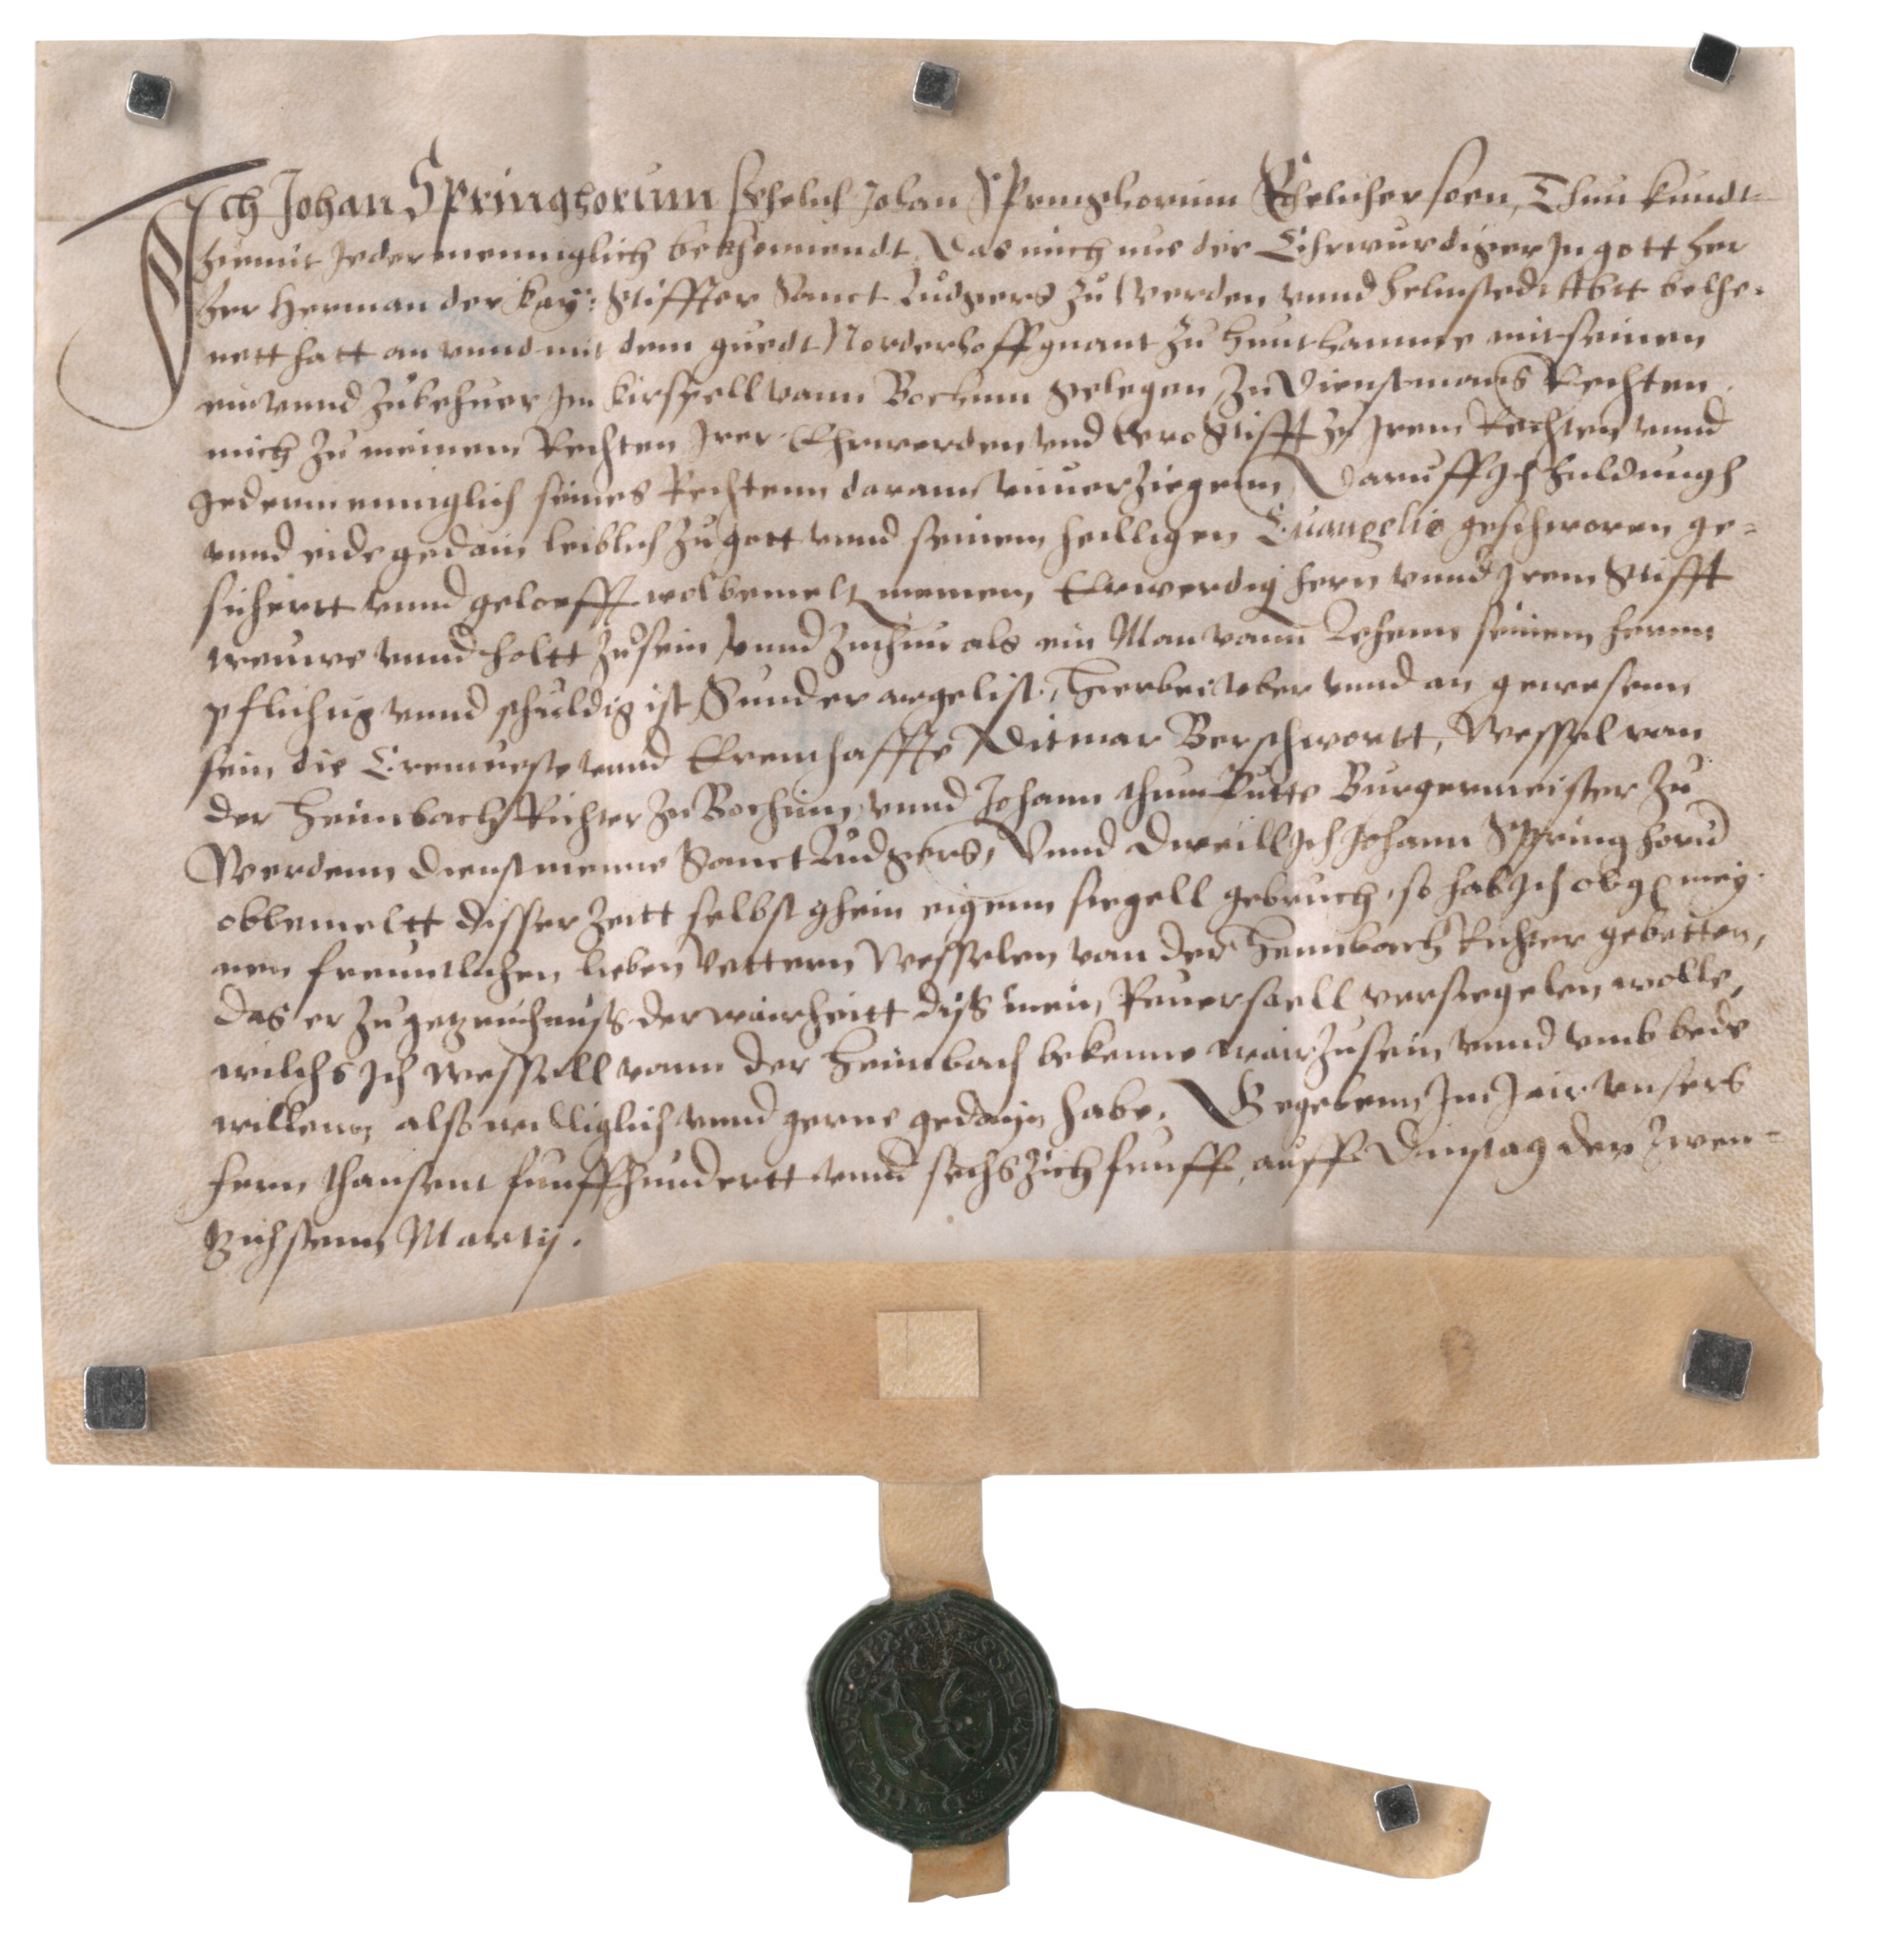 Ich Johan Springhorum seheliche Johan Springhorum Ehelicher soen, Thun kundt
hiemit Jedermenniglich bekhennendt, Das mich nue der Ehrwurdiger In gott her
her Herman der kay: Stiffter Sanct Ludgers zů Werden vnnd helmstedt Abtt belhe-
nett hatt an vnnd mit dem guedt Norderhoff gnant zu Hunthamme mit seinen
ein vnnd Zubehuer Im kirspell vann Bochum gelegen, Zu Dienstmans Rechten
mich zu meinem Rechten Irer Ehrwerden vnd Ero Stifft zu Irem Rechten vnnd
Jedermenniglich seines Rechtenn daran vnuerziegenn, Daruff Ich huldungh
vnnd eide gedain leiblich zu gott vnnd seinem heilligen Euangelio geschworen ge-
sichertt vnnd geloefft wolbemelt meinem, Erwerdig hern vnnd Irem Stifft
trewwe vnnd holtt zu sein vnnd zuthun als ein Man vann Lehenn seinem hernn
pflichtig vnnd schuldig ist, Sunder argelist, Hierbei vber vnnd an gewesenn
sein die Erenueste vnnd Erenthaffte Ditmar Berschwortt, Wessel van
der Heimbach Richter zu Bochum, vnnd Johann thum Putte Burgermeister zu
Werdenn Dienstmenne Sanct Ludgers, Vnnd dweill Ich Johann Springhorum
obbemeltt disser Zeitt selbst ghein eigenn siegell gebruch, so hab Ich obgl mey-
nen freuntlichen lieben Vettern Wesselen van der Heimbach Richter gebetten,
das er zu getzeuchnuss der wairheitt diss mein Reuersaell versiegelen wolle,
wilchs Ich Wessell vann der Heimbach bekenne wair zu sein vnnd vmb bede
willenn also williglich vnnd gerne gedayn habe. Gegebenn Im Jair vnsers
hern thausent funffhundertt vnnd sechszich funff, auff Dinstag den zwen-
tzichstenn Martij.